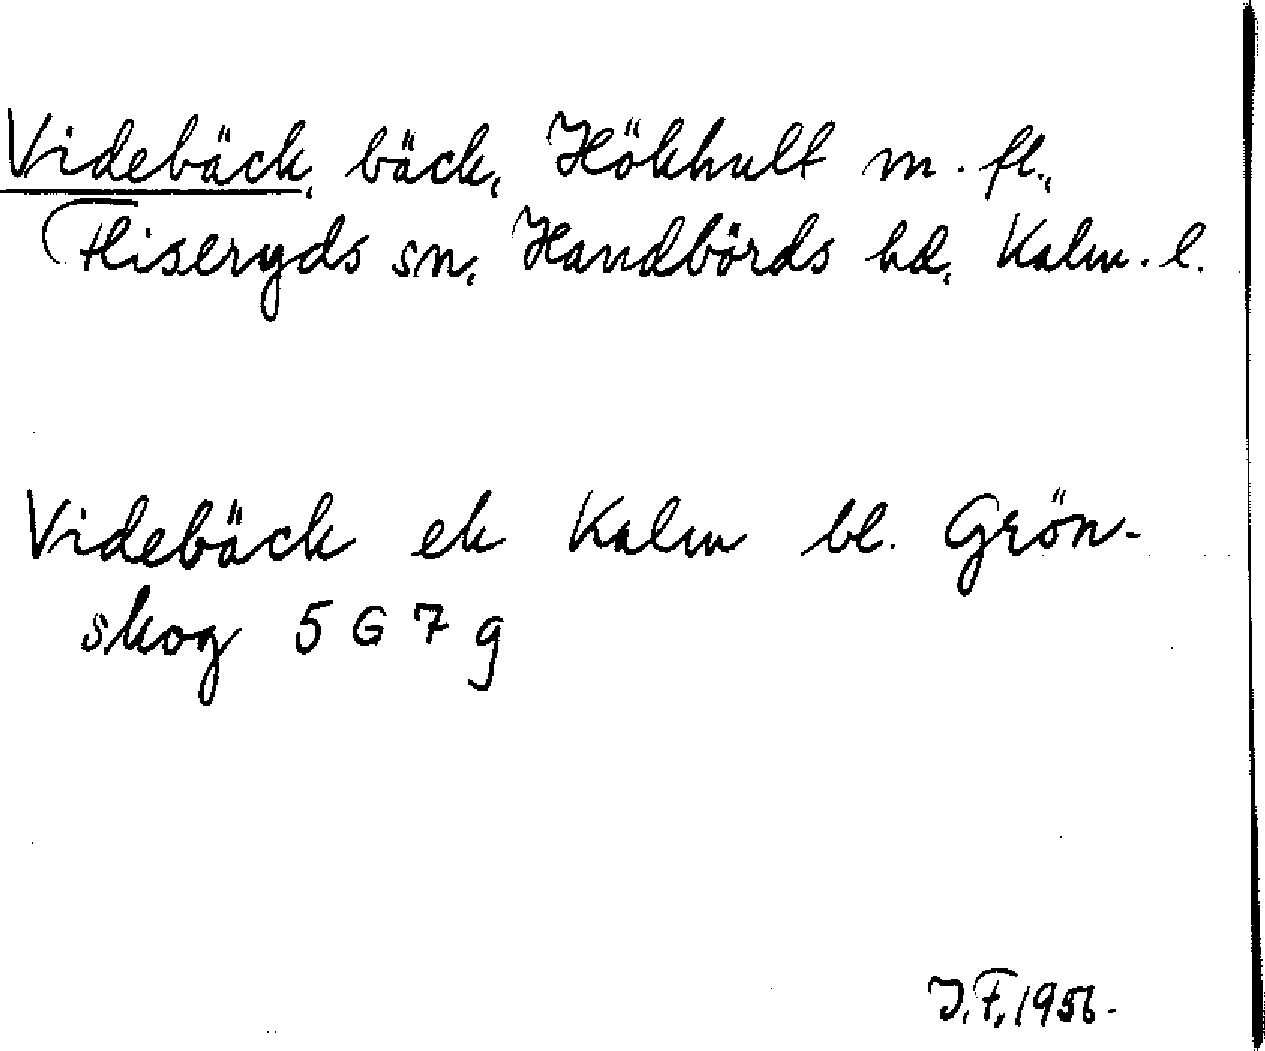 Videbäck, bäck, Hökhult m. fl.,
Fliseryds sn, Handbörds hd, Kalm. l.
Videbäck ek Kalm bl. Grön-
skog 5 G 7 g
J.F. 1956.